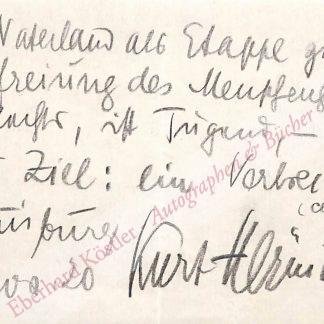 Vaterland als Etappe z
freiung des Menschen
ist Tugend, –
Ziel: ein Verbrec
Duisburg
Kurt Heyni
Eberhard Köstler Autographen & Bücher